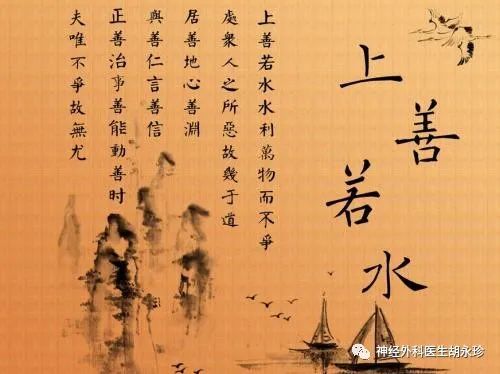 上善若水
上善若水水利萬物而不爭
處衆人之所惡故幾于道
居善地心善淵
與善仁言善信
正善治事善能動善时
夫唯不爭故無尤
神经外科医生胡永珍